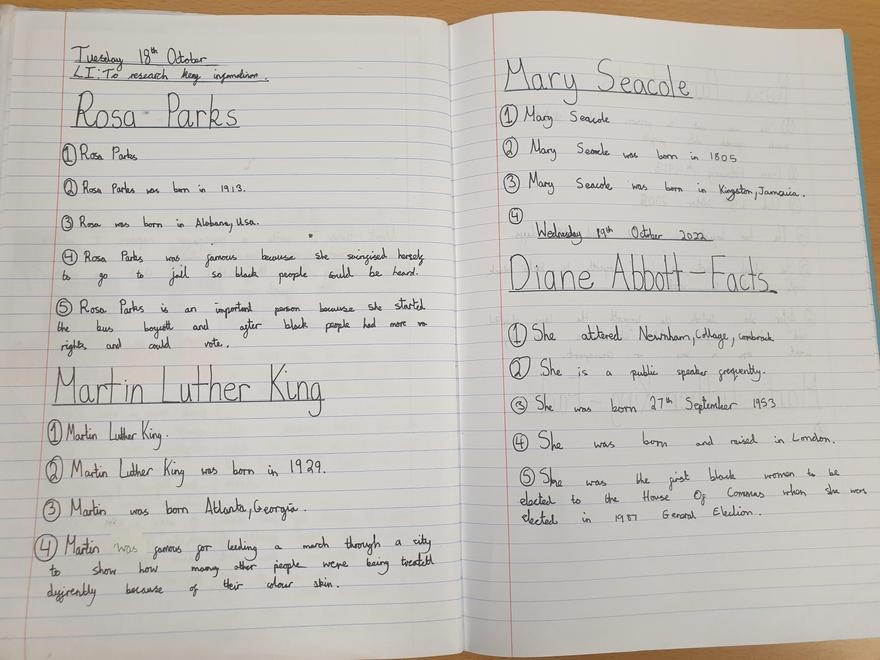 Tuesday 18th October
LI: To research key information.
Rosa Parks
① Rosa Parks
② Rosa Parks was born in 1913.
③ Rosa was born in Alabane, Usa.
④ Rosa Parks was famous because she sacrigised herself
to go to jail so black people could be heard.
⑤ Rosa Parks is an important person because she started
the bus boycott and after black people had more
rights and could vote.
Martin Luther King
① Martin Luther King.
② Martin Luther King was born in 1929.
③ Martin was born Atlanta, Georgia.
④ Martin was famous for leading a march through a city
to show how many other people were being treated
diffrently because of their colour skin.
Mary Seacole
① Mary Seacole
② Mary Seacole was born in 1805
③ Mary Seacole was born in Kingston, Jamaica.
④
Wednesday 19th October 2022
Diane Abbott - Facts
① She attered Newnham, Collage,
② She is a public speaker frequently.
③ She was born 27th September 1953
④ She was born and raised in London.
⑤ She was the first black women to be
elected to the House Of Commas when she was
elected in 1987 General Election.